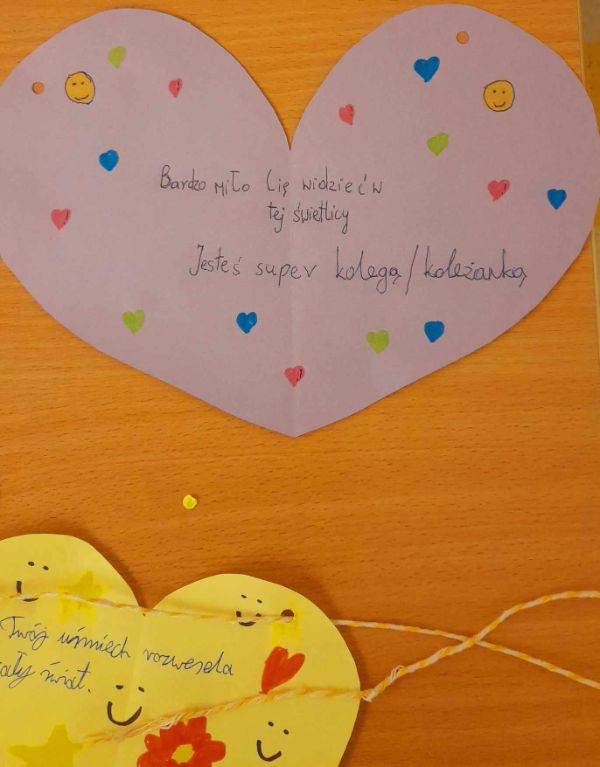 Bardzo miło Cię widzieć w
tej świetlicy
Jesteś super kolegą/koleżanką
Twój uśmiech rozwesela
cały świat.